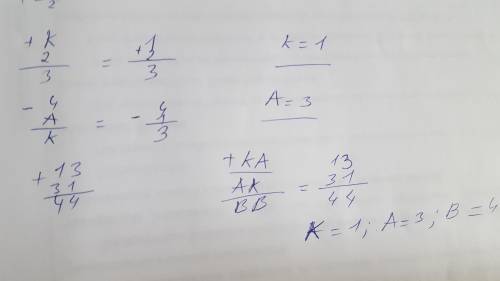 + K
2
3
=
+ 1
2
3
K = 1
- 4
A
K
=
- 4
1
3
A = 3
+ 13
31
44
+ KA
AK
BB
=
13
31
44
K = 1; A = 3; B = 4